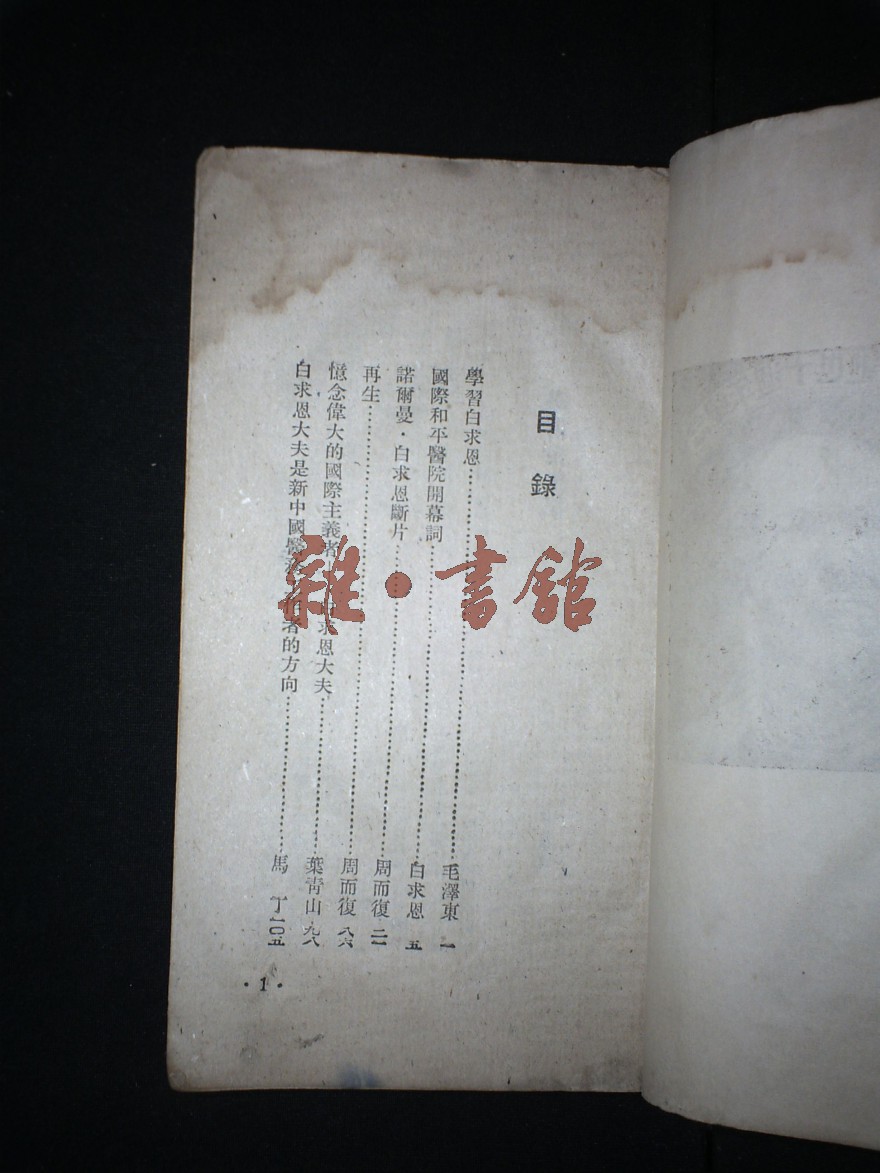 目錄
學習白求恩……毛澤東 一
國際和平醫院開幕詞……白求恩 五
諾爾曼·白求恩斷片……周而復 二一
再生……周而復 八六
憶念偉大的國際主義者 求恩大夫……葉青山 九八
白求恩大夫是新中國醫 者的方向……馬丁 一〇五
·1·
雜·書館